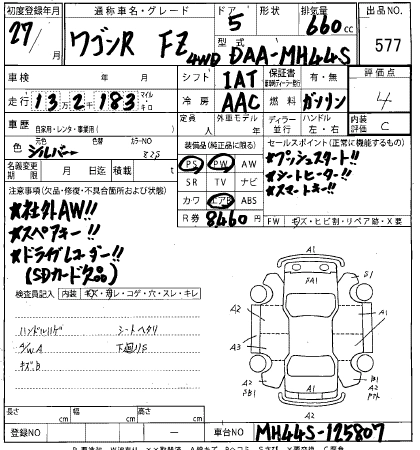 初度登録年月 通称車名・グレード ドア 形状 排気量 出品NO.
27/ 月 ワゴンR FZ 4WD 5 660 cc 577
型式 DAA-MH44S
車検 年 月 シフト IAT 保証書 有・無 評価点
走行 13万2千183 マイル キロ 冷房 AAC 燃料 ガソリン 4
車歴 自家用・レンタ・事業用( ) 定員 人 外車モデル 年 ディーラー 並行 ハンドル 左・右 内装評価 C
色 シルバー カラーNO
名義変更期限 月 日迄 積載 t
装備品(純正品に限る) セールスポイント(正常に機能するもの)
PS PW AW ★プッシュスタート!!
SR TV ナビ ★シートヒーター!!
カワ エアB ABS ★スマートキー!!
R券 8460円 FW キズ・ヒビ割・リペア跡・X要
注意事項(欠品・修復・不具合箇所および状態)
★社外AW!!
★スペアキー!!
★ドライブレコーダー!!
(SDカード欠品)
検査員記入 内装 キズ・汚レ・コゲ・穴・スレ・キレ
ハンドルハゲ シートヘタリ
A/W A 下廻りS
キズB
A1
S1
A2 A1
A3
A1
A2
A2
長さ cm 幅 cm 高さ cm
登録NO ー 車台NO MH44S-125807